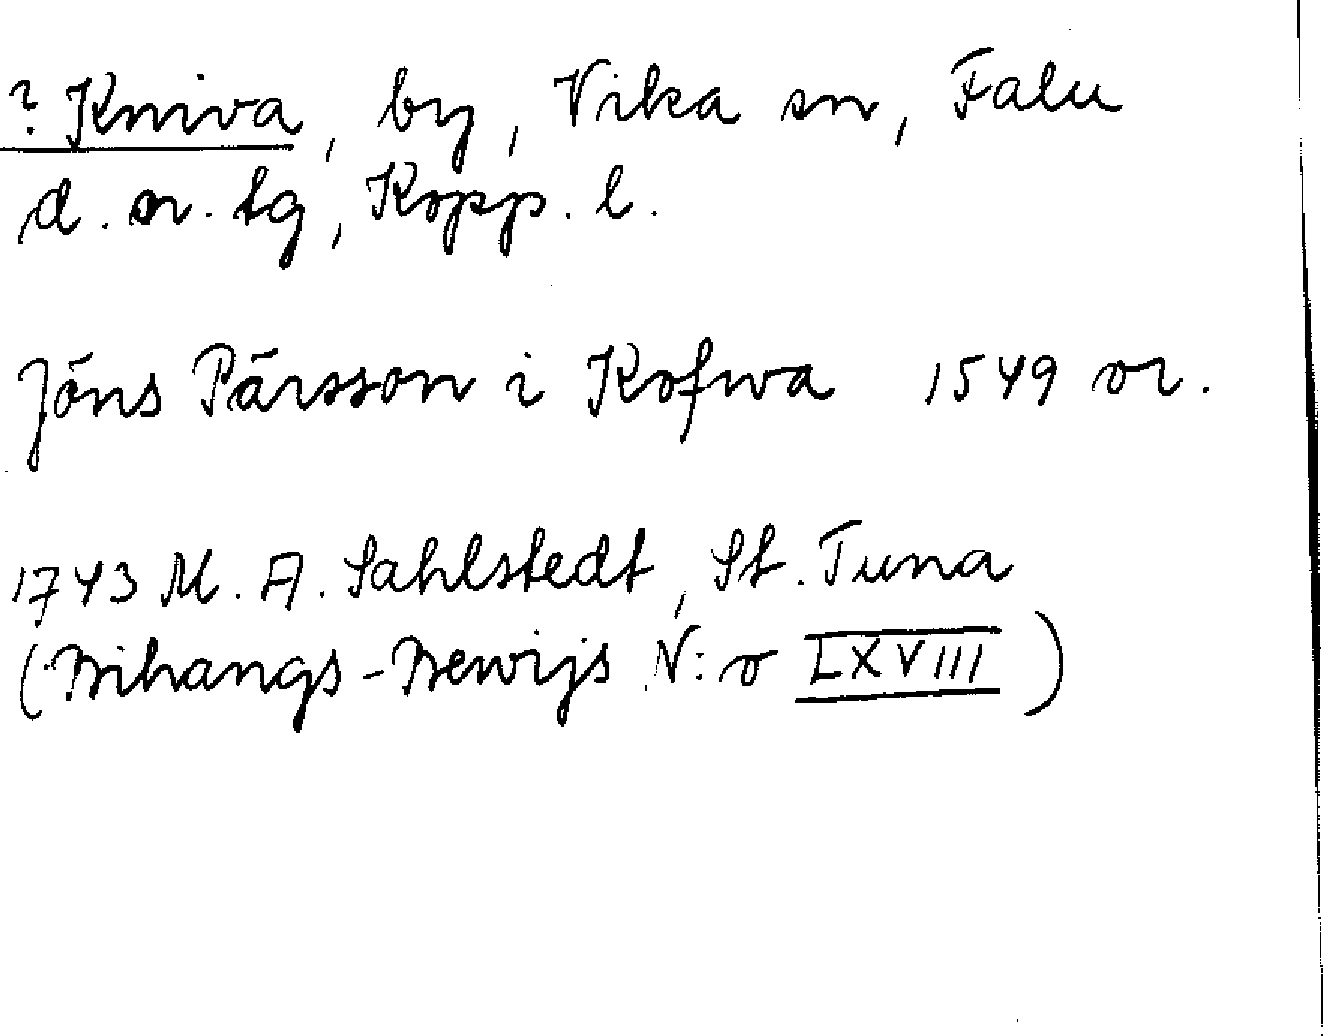 ? Kniva, by, Vika sn, Falu
d. n. tg, Kopp. l.
Jöns Pärsson i Kofwa 1549 or.
1743 M. A. Sahlstedt, St. Tuna
(Bihangs-Bewijs N:o LXVIII)